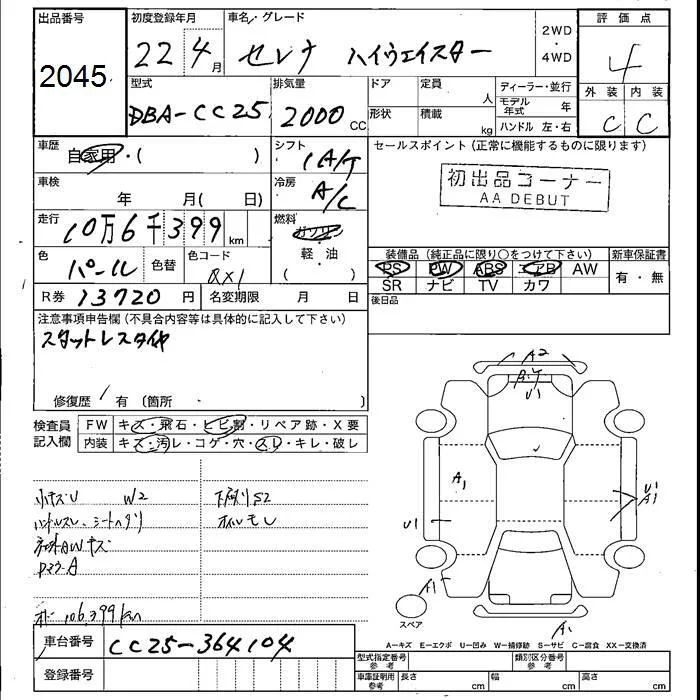 出品番号
2045
初度登録年月
22 4月
車名・グレード
セレナ ハイウェイスター
2WD
・
4WD
評価点
4
外装 内装
C C
型式
DBA-CC25
排気量
2000cc
ドア
形状
定員
人
積載
kg
ディーラー・並行
モデル年式 年
ハンドル 左・右
車歴
自家用・( )
シフト
1A/T
車検
年 月( 日)
冷房
A/C
走行
10万6千399km
燃料
ガソリン
軽・油
( )
色
パール
色替
色コード
QX1
R券 13720円
名変期限 月 日
セールスポイント(正常に機能するものに限ります)
初出品コーナー
AA DEBUT
装備品(純正品に限り○をつけて下さい)
PS PW ABS エアB AW
SR ナビ TV カワ
新車保証書
有・無
後日品
注意事項申告欄(不具合内容等は具体的に記入して下さい)
スタットレスタイヤ
修復歴 有(箇所 )
検査員
記入欄
FW キズ・飛石・ヒビ割・リペア跡・X要
内装 キズ・汚レ・コゲ・穴・スレ・キレ・破レ
小キズU W2
下廻りS2
ハンドルスレ、シートヘタリ
オイルモレ
AWキズ
106,399km
車台番号
CC25-364104
登録番号
A2
U1
A1
U1
A1
U1
A1
A1
スペア
A-キズ E-エクボ U-凹み W-補修跡 S-サビ C-腐食 XX-交換済
型式指定番号
参考
類別区分番号
参考
車庫証明用
参考
長さ cm
幅 cm
高さ cm